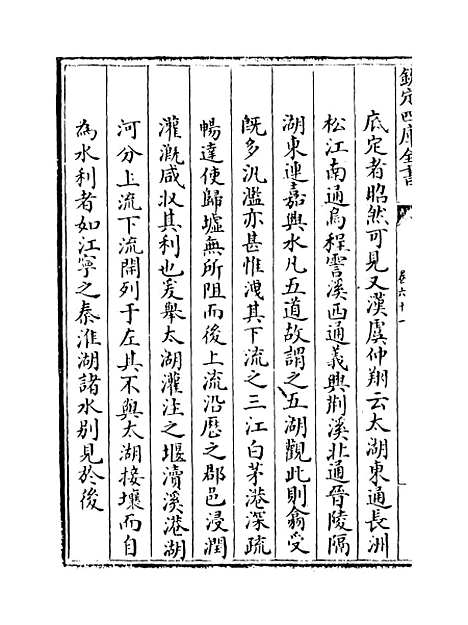 欽定四庫全書
卷六十一
底定者昭然可見又漢虞仲翔云太湖東通長洲
松江南通烏程霅溪西通義興荆溪北通晉陵隔
湖東連嘉興水凡五道故謂之五湖觀此則翕受
既多汎濫亦甚惟洩其下流之三江白茅港深疏
暢達使歸墟無所阻而後上流沿歴之郡邑浸潤
灌漑咸收其利也爰舉太湖灌注之堰瀆溪港湖
河分上流下流開列于左其不與太湖接壤而自
為水利者如江寧之秦淮湖諸水别見於後